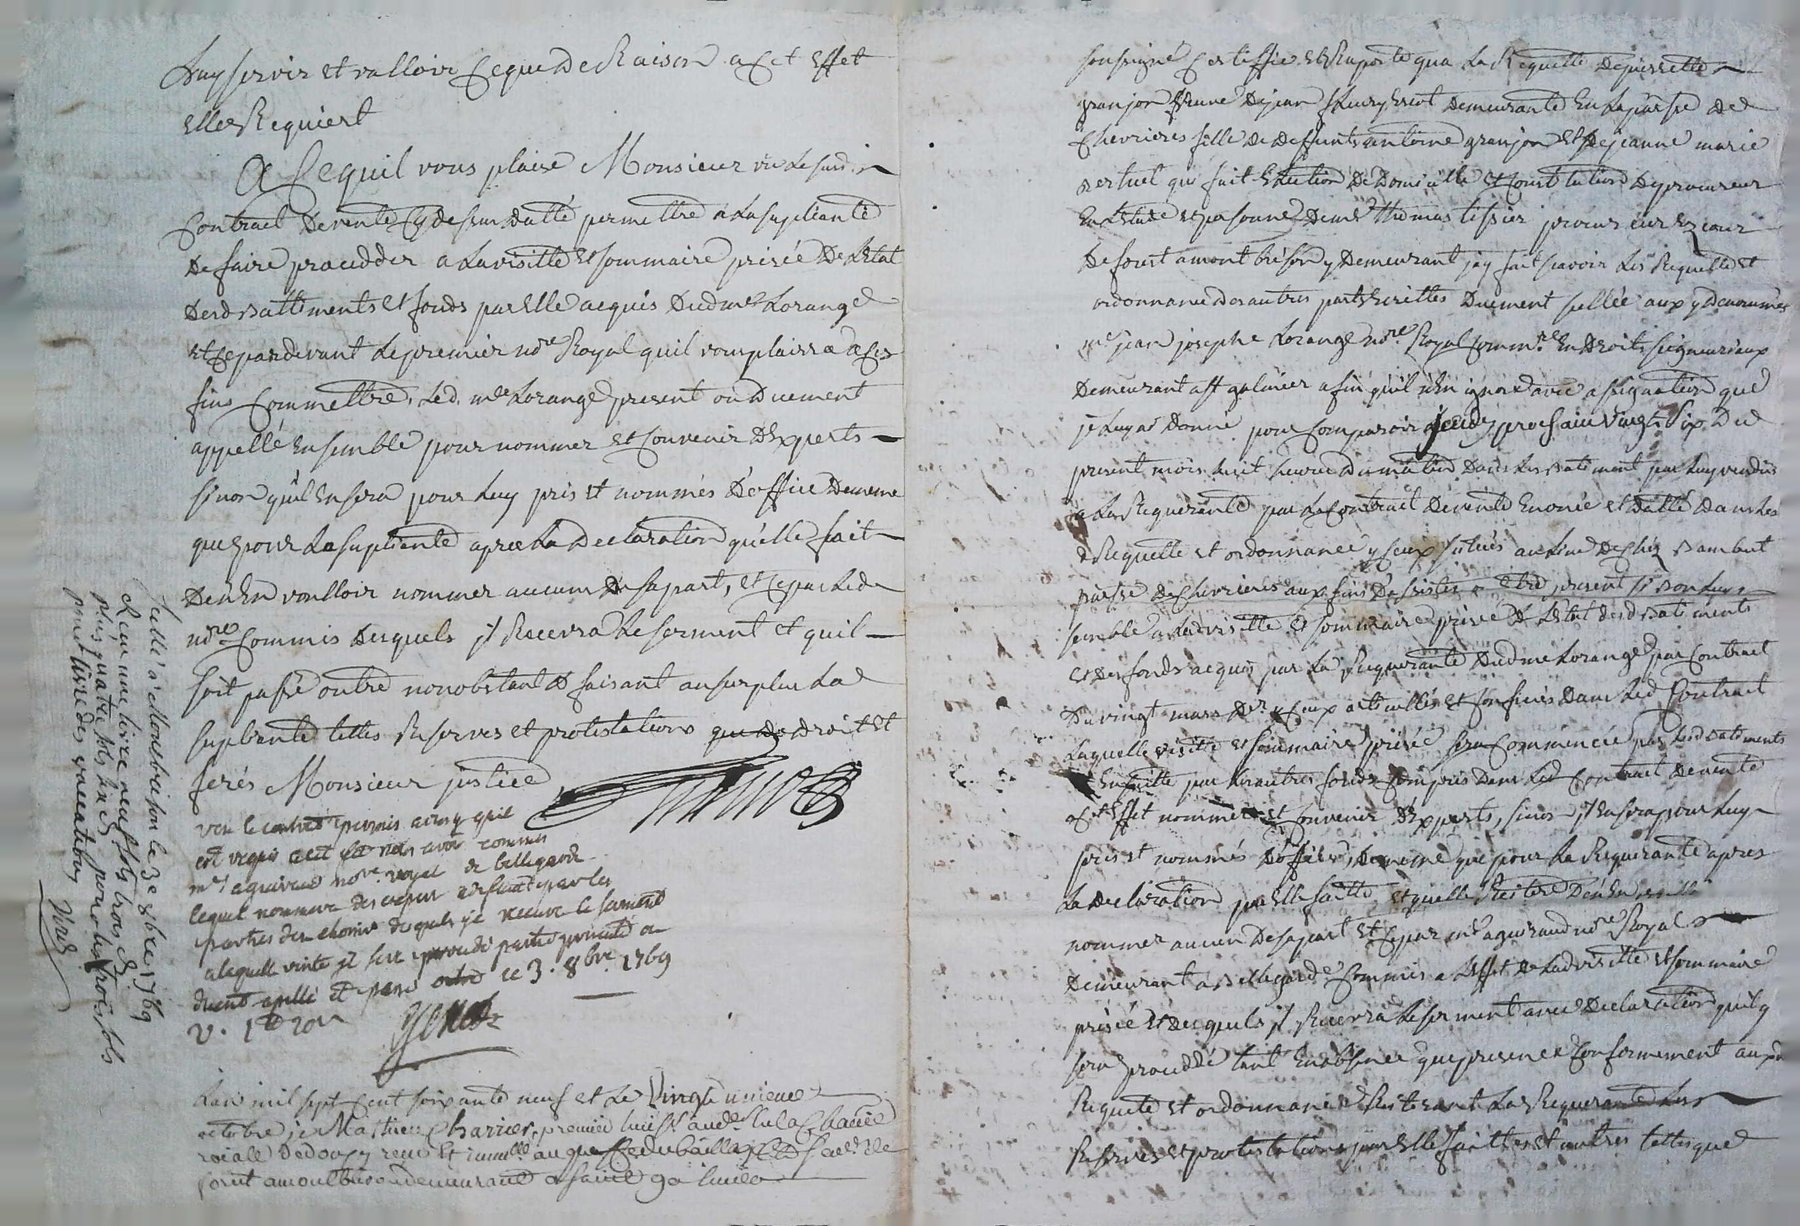 Luy servir et valloir ce que de Raison a cet Effet
elle Requiert
A ce quil vous plaise Monsieur vu le susdit
Contract de vente cy dessus datté permettre a la supliante
de faire procedder a la visitte et sommaire prisée de l'Etat
desd Battiments et fonds par elle acquis dud me Lorange
et ce pardevant le premier nore Royal quil vous plaira a ces
fins Commettre, led. me Lorange present ou duement
appellé Ensemble pour nommer et convenir d'Experts
sinon quil En sera pour luy pris et nommés d'office de meme
que pour la supliante apres la declaration quelle fait
de n'En voulloir nommer aucun de sa part, et ce par led
nore Commis desquels il Recevra le serment et quil
soit passé outre nonobstant et faisant au surplus la
supliante telles Reserves et protestations que de droit et
ferés Monsieur justice
vu le contrat permis ainsy quil
est requis a cet effet nous avons commis
me aguiraud nore royal de bellegarde
lequel nommera des experts a deffaut par les
parties den choisir desquels il recevra le serment
a laquelle visite il sera procedé partie presente ou
duent apellé et passé outre ce 3. 8bre. 1769
Scellé a Montbrison le 3e 8bre 1769
Reçu une livre neuf sols trois d
plus quatre sols six d. pour les trois sols
pour livre des vaccations
L'an mil sept Cent soixante neuf et le vingt unieme
octobre je Mathieu Charrier premier huissier aud. en la Chatlie
roialle de donzy reçu et immllé au greffe du bailliage de
forest a montbrison demeurant a saint galmier
soussigné Certiffie et Raporte qua la Requette de pierrette
granjon veuve de jean fleury Escot demeurante En la parse de
Chevrieres fille de deffunts antoine granjon et de jeanne marie
qui fait Election de Domicille et Constitution de procureur
En l'Etude et personne de me thomas tissier procureur Ez cour
de forest a montbrison y demeurant jay fait sçavoir les Requette et
ordonnance des autres parts Ecrittes duement scellée aux y denommés
me jean josephe Lorange nore Royal Commre En droits seigneuriaux
demeurant a st galmier afin quil n'En ignore avec assignation que
je luy ai donné pour comparoir jeudy prochain vingt six du
present mois huit heures du matin dans les Batiment par luy vendus
a la Requerante par le Contract de vente Enoncé et datté dans les
d Requette et ordonnance y ceux situés au lieu de chez Rambert
parse de chevrieres aux fins d'assister et Etre present si bon luy
semble a lad visitte et sommaire prisée de l'Etat desd Batiments
et des fonds acquis par la Requerante dud me Lorange par Contract
du vingt mars der y ceux articullés et confinés dans led Contract
Laquelle visitte et sommaire prisée sera commencée par lesd Batiments
Ensuitte par les autres fonds Compris dans led Contract de vente
a cet Effet nommer et Convenir d'Experts, sinon il En sera pour luy
pris et nommés d'office, de meme que pour la Requerante apres
la declaration par elle faitte, et quelle Reitere de n'En voulloir
nommer aucun de sa part et ce par me aguiraud nore Royal
demeurant a Bellegarde Commis a l'Effet de lad visitte et sommaire
prisée et desquels il Recevra le serment avec declaration quil y
sera proceddé tant En absence que presence Conformement aux d
Requete et ordonnance Reiterant la Requerante les
Reserves et protestations par elle faittes et autres telles que